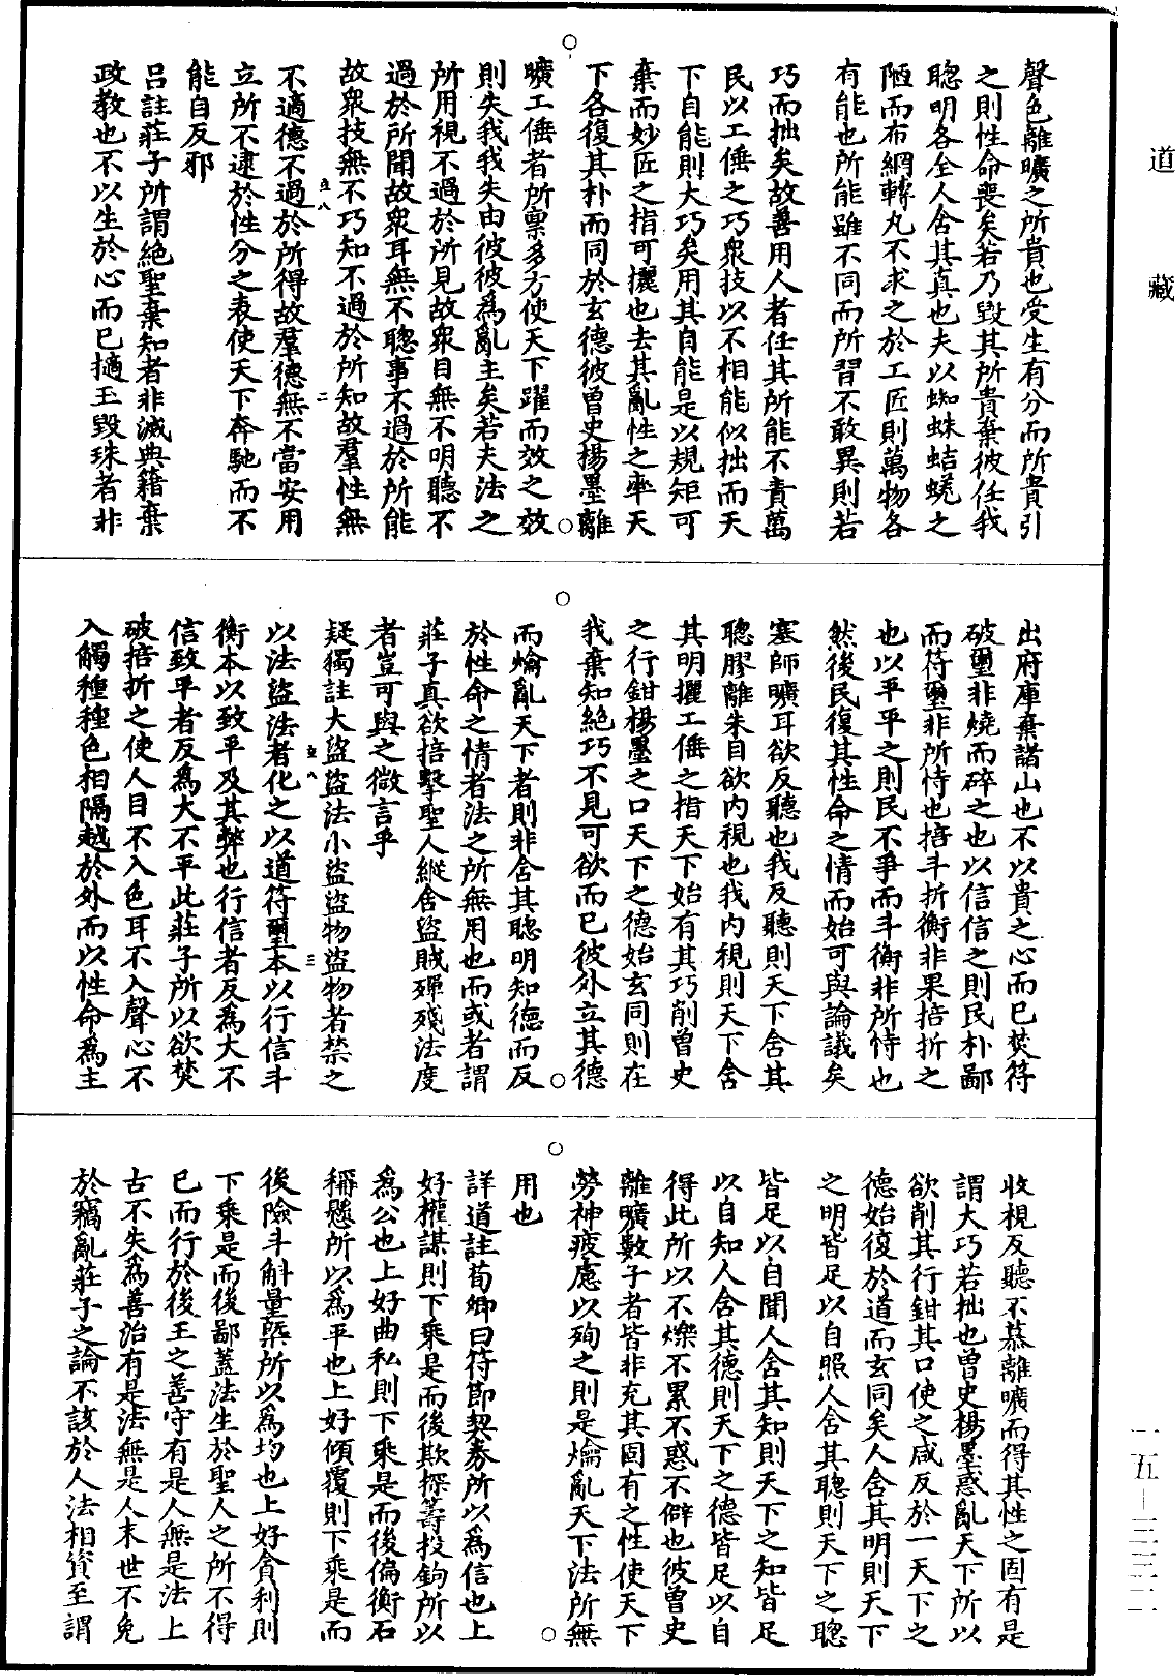 道藏
聲色離曠之所貴也受生有分而所貴引
之則性命喪矣若乃毀其所貴棄彼任我
聰明各全人含其真也夫以蜘蛛蛣蜣之
陋而布網轉丸不求之於工匠則萬物各
有能也所能雖不同而所習不敢異則若
巧而拙矣故善用人者任其所能不責萬
民以工倕之巧衆技以不相能似拙而天
下自能則大巧矣用其自能是以規矩可
棄而妙匠之指可攦也去其亂性之率天
下各復其朴而同於玄德彼曾史楊墨離
曠工倕者所禀多方使天下躍而效之效
則失我我失由彼彼為亂主矣若夫法之
所用視不過於所見故衆目無不明聽不
過於所聞故衆耳無不聰事不過於所能
故衆技無不巧知不過於所知故羣性無
不適德不過於所得故羣德無不當安用
立所不逮於性分之表使天下奔馳而不
能自反邪
呂註莊子所謂絕聖棄知者非滅典籍棄
政教也不以生於心而已擿玉毀珠者非
五八 二
出府庫棄諸山也不以貴之心而已焚符
破璽非燒而碎之也以信信之則民朴鄙
而符璽非所恃也掊斗折衡非果掊折之
也以平平之則民不爭而斗衡非所恃也
然後民復其性命之情而始可與論議矣
塞師曠耳欲反聽也我反聽則天下含其
聰膠離朱目欲內視也我內視則天下含
其明攦工倕之指天下始有其巧削曾史
之行鉗楊墨之口天下之德始玄同則在
我棄知絕巧不見可欲而已彼外立其德
而爚亂天下者則非含其聰明知德而反
於性命之情者法之所無用也而或者謂
莊子真欲掊擊聖人縱舍盜賊殫殘法度
者豈可與之微言乎
疑獨註大盜盜法小盜盜物盜物者禁之
以法盜法者化之以道符璽本以行信斗
衡本以致平及其弊也行信者反為大不
信致平者反為大不平此莊子所以欲焚
破掊折之使人目不入色耳不入聲心不
入觸種種色相隔越於外而以性命為主
五八 三
收視反聽不慕離曠而得其性之固有是
謂大巧若拙也曾史楊墨惑亂天下所以
欲削其行鉗其口使之咸反於一天下之
德始復於道而玄同矣人含其明則天下
之明皆足以自照人含其聰則天下之聰
皆足以自聞人含其知則天下之知皆足
以自知人含其德則天下之德皆足以自
得此所以不爍不累不惑不僻也彼曾史
離曠數子者皆非充其固有之性使天下
勞神疲慮以殉之則是爚亂天下法所無
用也
詳道註荀卿曰符節契券所以為信也上
好權謀則下乘是而後欺探籌投鉤所以
為公也上好曲私則下乘是而後偏衡石
稱懸所以為平也上好傾覆則下乘是而
後險斗斛量槩所以為均也上好貪利則
下乘是而後鄙蓋法生於聖人之所不得
已而行於後王之善守有是人無是法上
古不失為善治有是法無是人末世不免
於竊亂莊子之論不該於人法相資至謂
一五—三三二